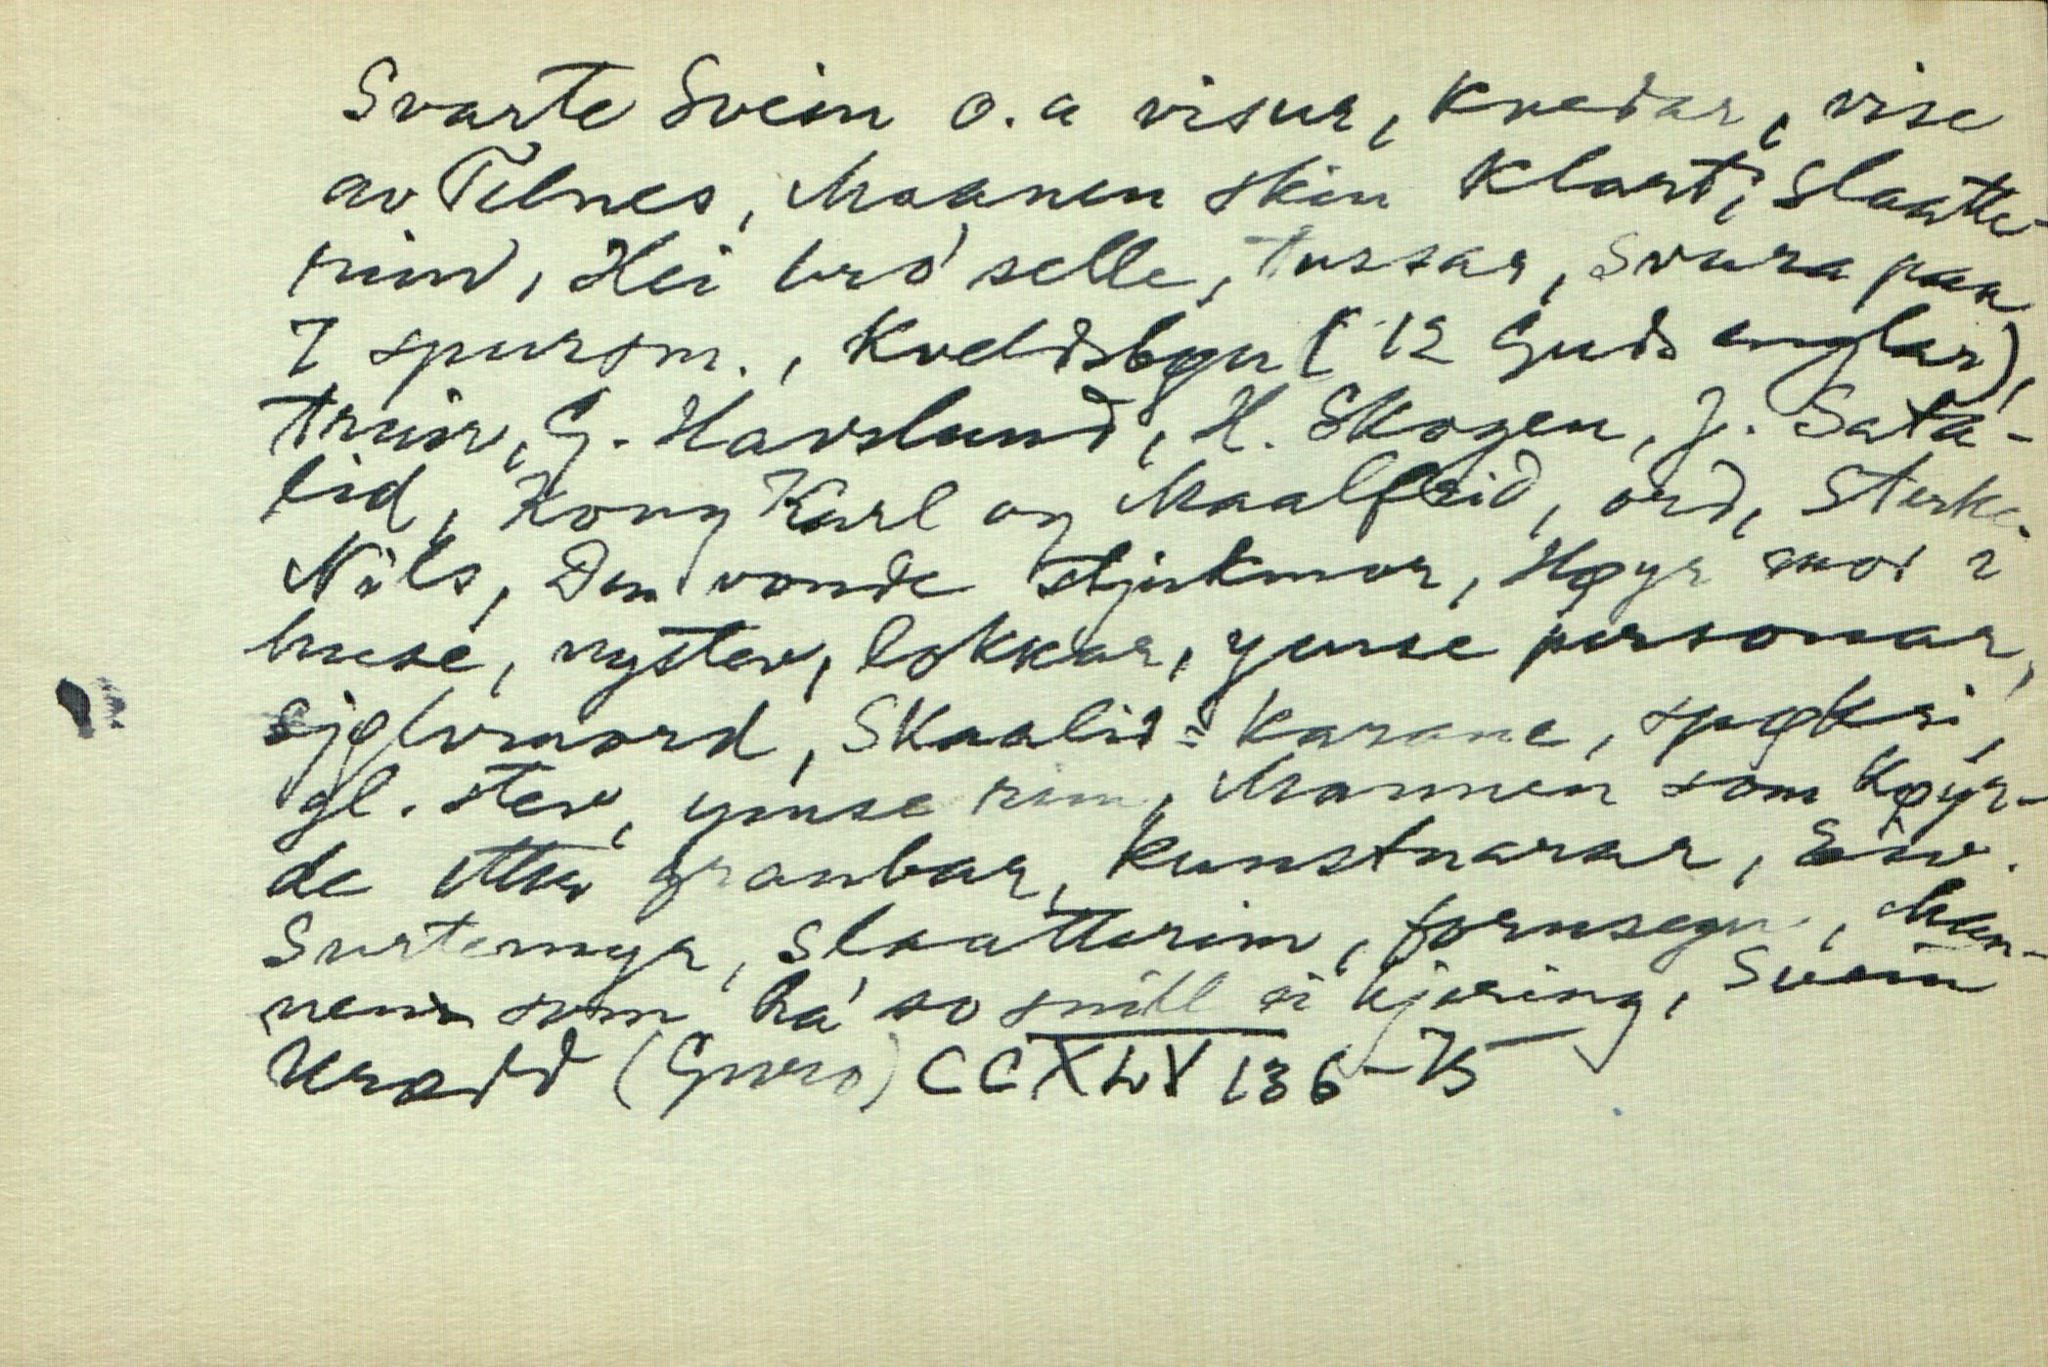 Svarte Svein o.a visur, kvedar, vise
av Telnes, Maanen skin klart, Slaatte-
rim, Hei bro selle, tussar, Svara paa
7 spursm., Kveldsbøn (12 Guds englar),
truir, G. Havslund, H. Skogen, J. Bata-
lid, Kong Karl og Maalfrid, ord, Sterke
Nils, Den vonde stjukmor, Høyr mor i
huse, nystev, lokkar, ymse personar,
sjølvmord, Skaalid-karane, spøkri,
gl. stev, ymse rim, Mannen som køyr-
de etter granbar, kunstnarar, Eiv.
Svartemyr, slaatterim, fornsegn, Man-
nen som ha so snill ei kjering, Svein
Uradd (Guro) CCXLV 136-75